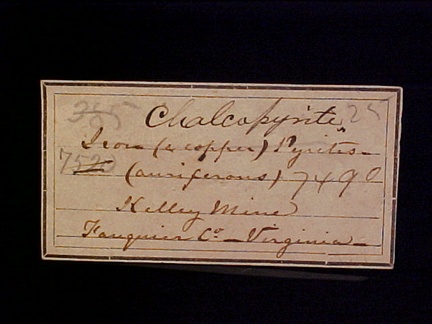 385 Chalcopyrite 25
Iron (& copper) Pyrites
7520 (auriferous) 7490
Kelley Mine
Fauquier Co – Virginia –